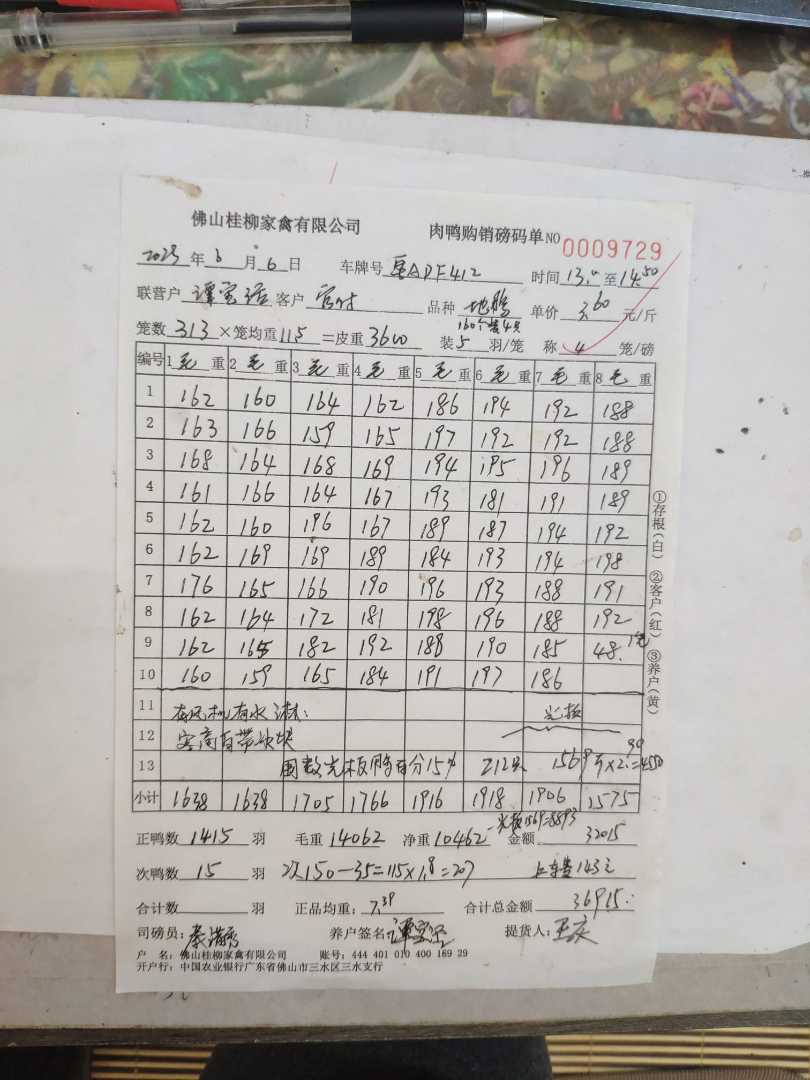 佛山桂柳家禽有限公司 肉鸭购销磅码单 NO 0009729
2023 年 6 月 6 日 车牌号 粤ADF412 时间 13.0 至 14.50
联营户 客户 品种 单价 3.60 元/斤
160个装4只
笼数 313 ×笼均重 11.5 =皮重 3600 装 5 羽/笼 称 4 笼/磅
编号 1 毛 重 2 毛 重 3 毛 重 4 毛 重 5 毛 重 6 毛 重 7 毛 重 8 毛 重
1 162 160 164 162 186 194 192 188
2 163 166 159 165 197 192 192 188
3 168 164 168 169 194 195 196 189
4 161 166 164 167 193 181 191 189
5 162 160 196 167 189 187 194 192
6 162 169 169 189 184 193 194 198
7 176 165 166 190 196 193 188 191
8 162 164 172 181 198 196 188 192
9 162 165 182 192 188 190 185 48.
10 160 159 165 184 191 197 186
11 有风机有水 光板
12 客商自带
13 15% 212只 1569
小计 1638 1638 1705 1766 1916 1918 1906 1575
光板1569=8893
正鸭数 1415 羽 毛重 14062 净重 10462 金额 32015
次鸭数 15 羽 次150-35=115×1.8=207 上车费143元
合计数 羽 正品均重: 7.39 合计总金额 36915
司磅员: 养户签名: 提货人: 王庆
户 名: 佛山桂柳家禽有限公司 账号: 444 401 010 400 169 29
开户行: 中国农业银行广东省佛山市三水区三水支行
①存根(白) ②客户(红) ③养户(黄)